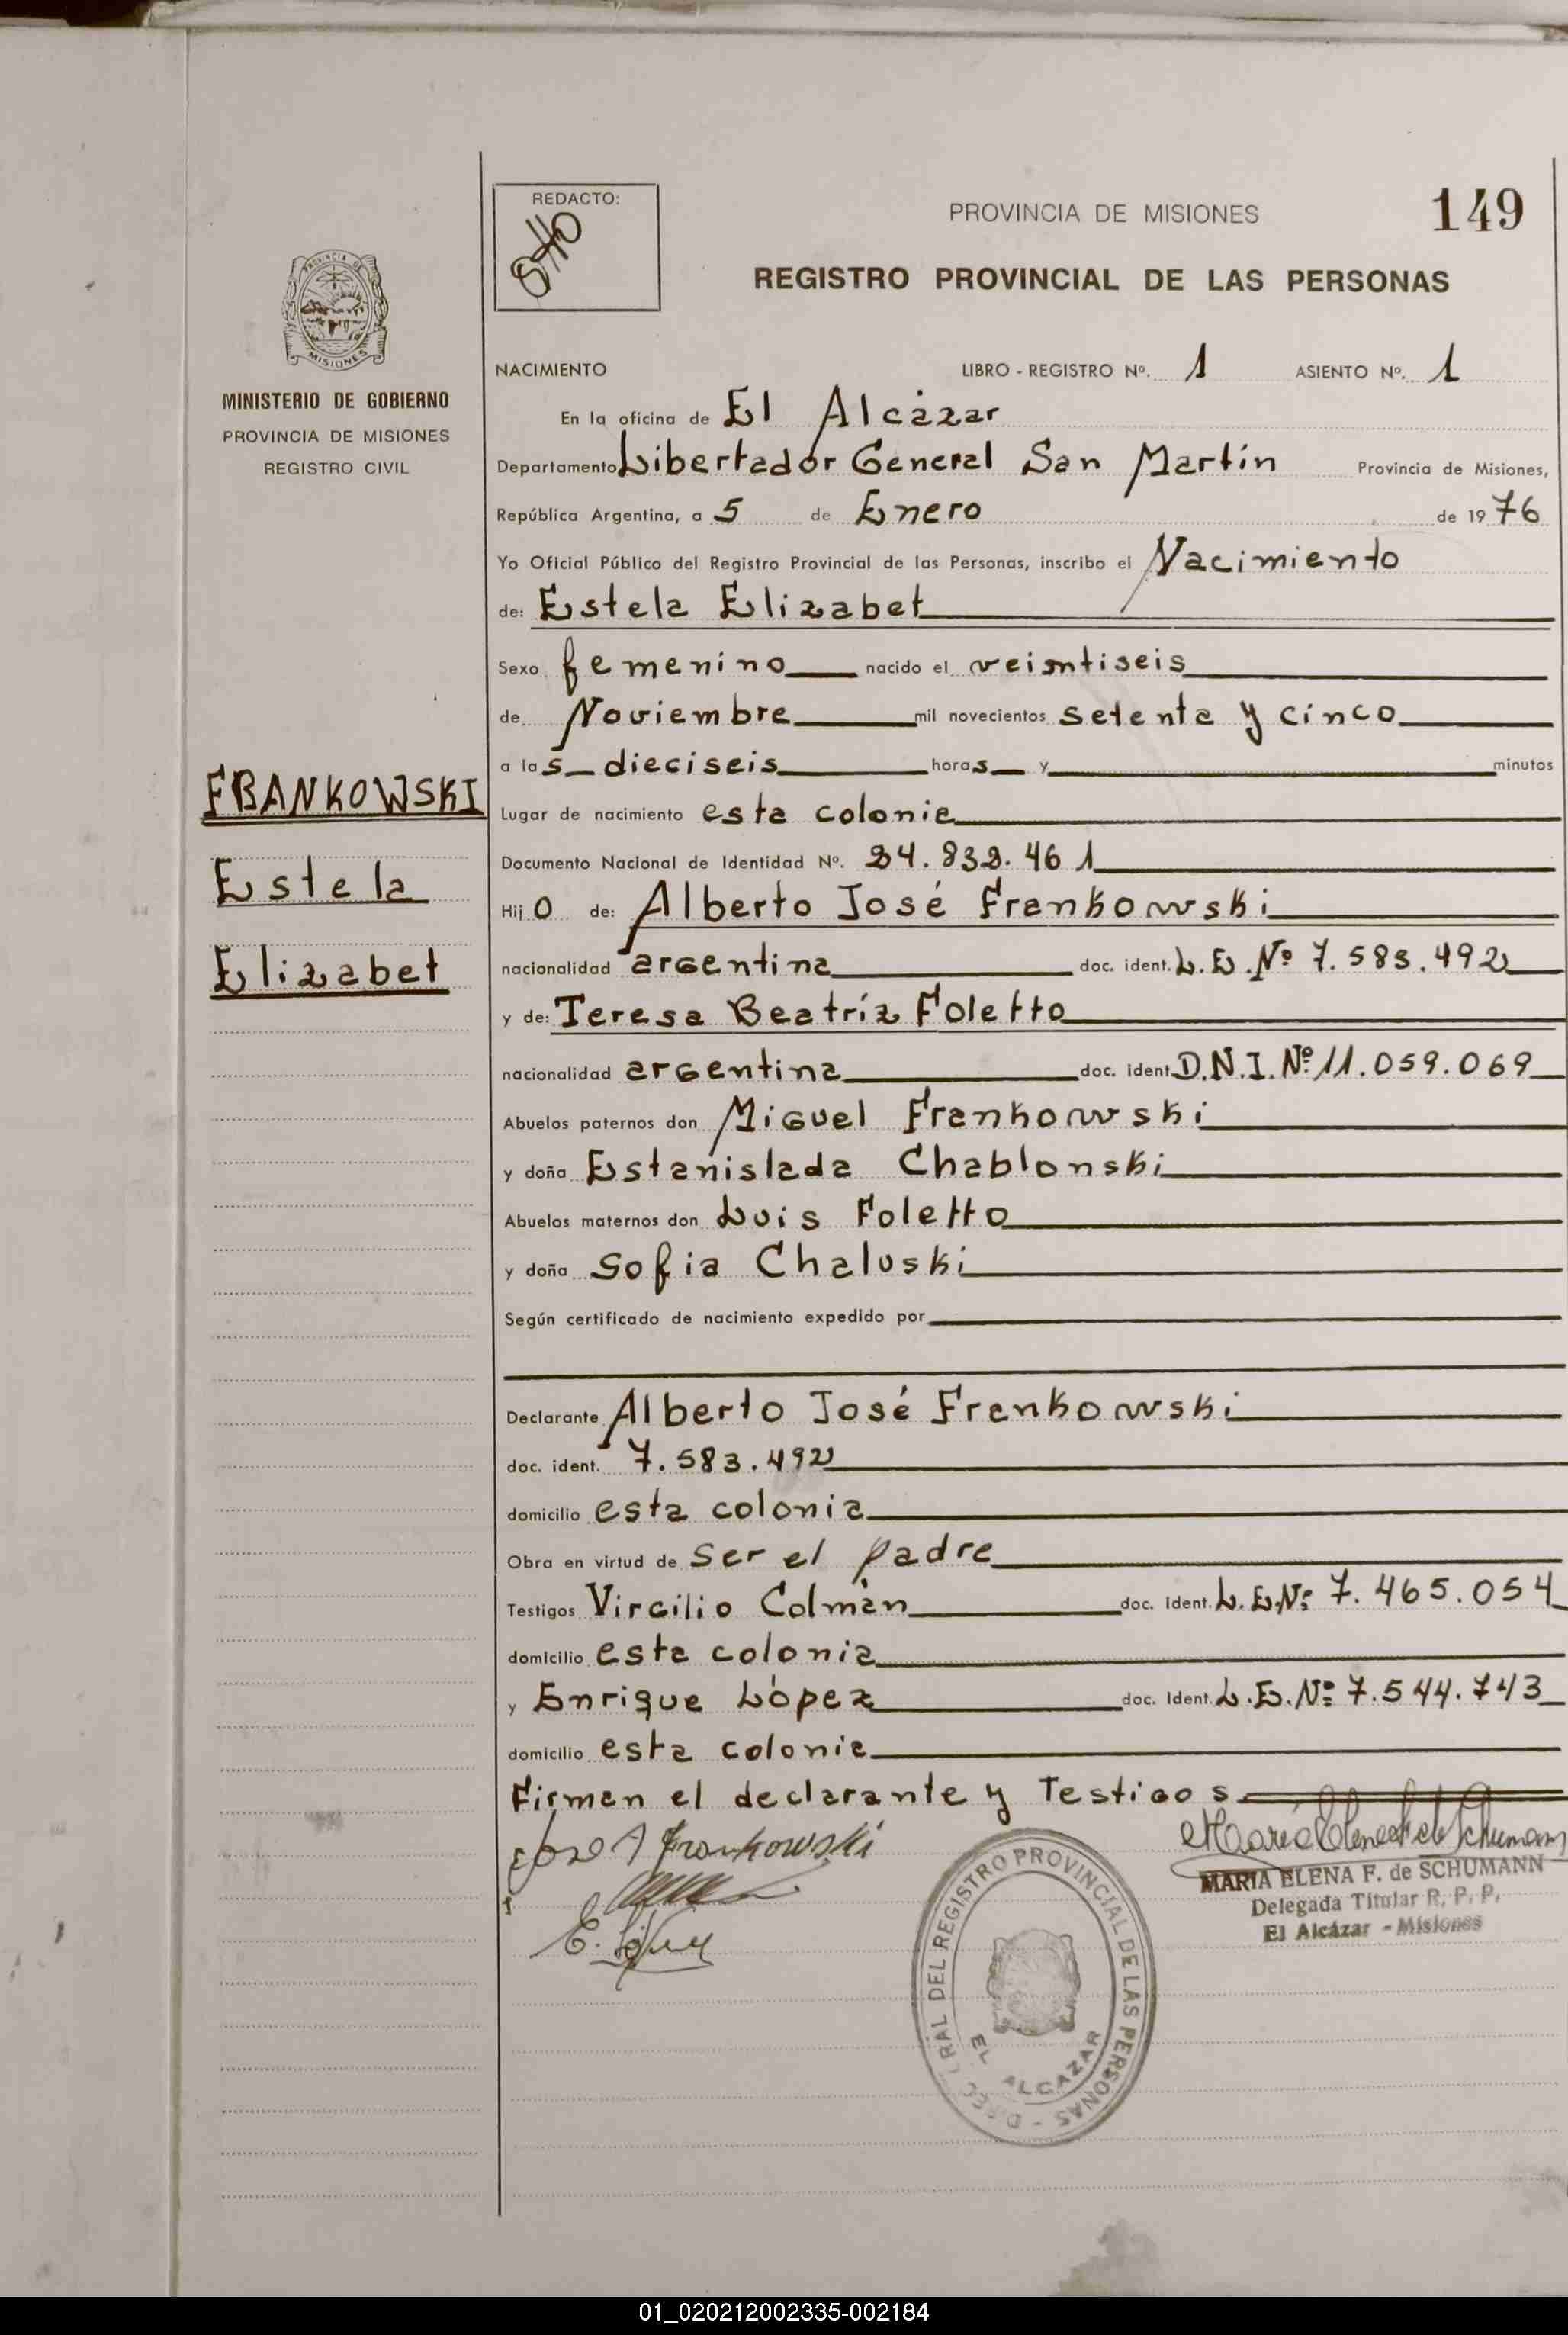 REDACTO:
Otto
PROVINCIA DE MISIONES
149
REGISTRO PROVINCIAL DE LAS PERSONAS
PROVINCIA DE
MISIONES
MINISTERIO DE GOBIERNO
PROVINCIA DE MISIONES
REGISTRO CIVIL
NACIMIENTO LIBRO - REGISTRO Nº. 1 ASIENTO Nº. 1
En la oficina de El Alcázar
Departamento Libertador General San Martín Provincia de Misiones,
República Argentina, a 5 de Enero de 1976
Yo Oficial Público del Registro Provincial de las Personas, inscribo el Nacimiento
de: Estela Elizabet
Sexo femenino nacido el veintiseis
de Noviembre mil novecientos setenta y cinco
a las dieciseis horas y minutos
FRANKOWSKI
Estela
Elizabet
Lugar de nacimiento esta colonia
Documento Nacional de Identidad Nº. 24.832.461
Hijo de: Alberto José Frankowski
nacionalidad argentina doc. ident. L.E.Nº 7.583.492
y de: Teresa Beatríz Foletto
nacionalidad argentina doc. ident. D.N.I.Nº 11.059.069
Abuelos paternos don Miguel Frankowski
y doña Estanislada Chablonski
Abuelos maternos don Luis Foletto
y doña Sofia Chaluski
Según certificado de nacimiento expedido por
Declarante Alberto José Frankowski
doc. ident. 7.583.492
domicilio esta colonia
Obra en virtud de ser el padre
Testigos Virgilio Colmán doc. Ident. L.E.Nº 7.465.054
domicilio esta colonia
y Enrique López doc. Ident. L.E.Nº 7.544.743
domicilio esta colonia
Firman el declarante y Testigos
José A Frankowski
E. López
María Elena F de Schumann
MARIA ELENA F. de SCHUMANN
Delegada Titular R. P. P.
El Alcázar - Misiones
RAL DEL REGISTRO PROVINCIAL DE LAS PERSONAS -
EL ALCAZAR
01_020212002335-002184